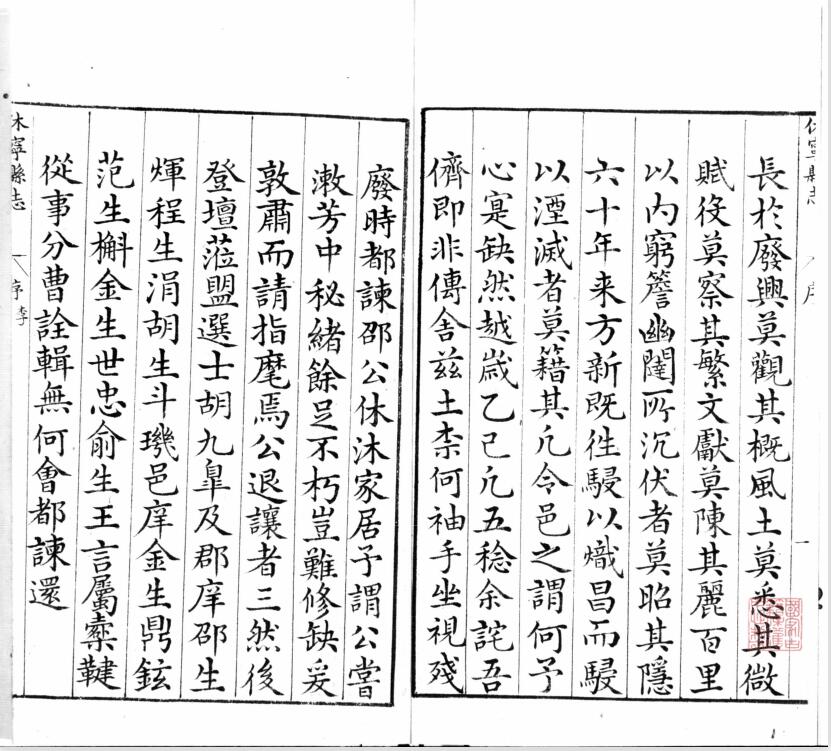 休寧縣志
序
一
長於廢興莫觀其概風土莫悉其微
賦役莫察其繁文獻莫陳其麗百里
以內窮簷幽闥所沉伏者莫昭其隱
六十年来方新既徃駸以熾昌而駸
以湮滅者莫籍其凢令邑之謂何予
心寔缺然越歲乙巳凢五稔余詫吾
儕即非傳舍兹土柰何袖手坐視殘
廢時都諫邵公休沐家居予謂公嘗
潄芳中秘緒餘足不朽豈難修缺爰
敦肅而請指麾焉公退讓者三然後
登壇蒞盟選士胡九臯及郡庠邵生
煇程生涓胡生斗璣邑庠金生鼎鉉
范生槲金生世忠俞生王言屬橐鞬
從事分曹詮輯無何會都諫還
休寧縣志
序李